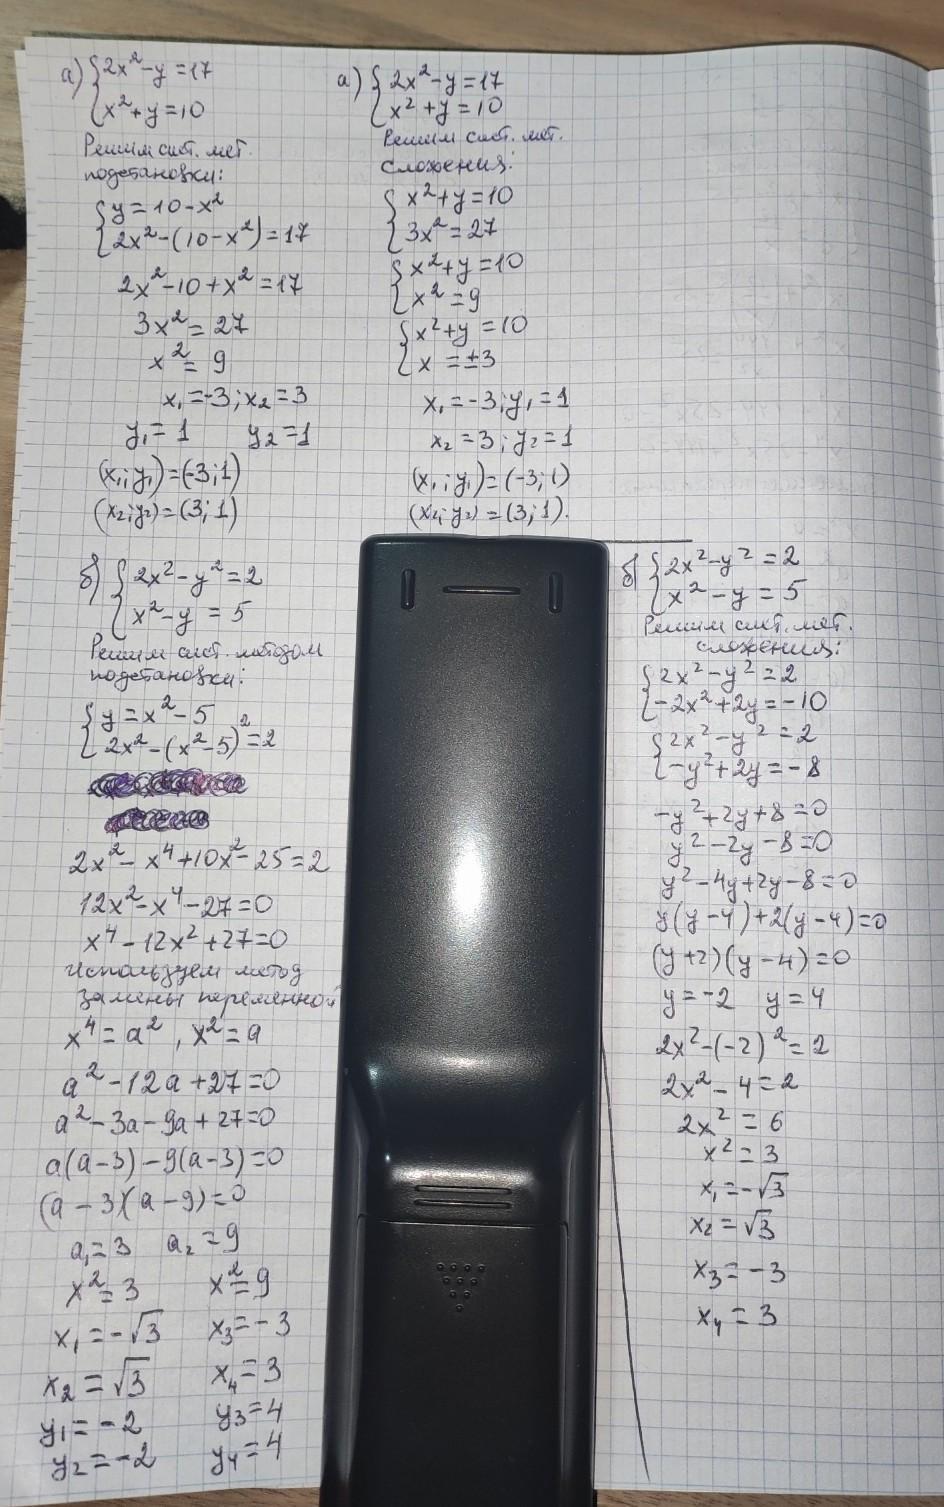 а) {2x²-y=17
{x²+y=10
Решим сист. мет.
подстановки:
{y=10-x²
{2x²-(10-x²)=17
2x²-10+x²=17
3x²=27
x²=9
x₁=-3; x₂=3
y₁=1 y₂=1
(x₁;y₁)=(-3;1)
(x₂;y₂)=(3;1)
а) {2x²-y=17
{x²+y=10
Решим сист. мет.
сложения:
{x²+y=10
{3x²=27
{x²+y=10
{x²=9
{x²+y=10
{x=±3
x₁=-3; y₁=1
x₂=3; y₂=1
(x₁;y₁)=(-3;1)
(x₂;y₂)=(3;1).
б) {2x²-y²=2
{x²-y=5
Решим сист. методом
подстановки:
{y=x²-5
{2x²-(x²-5)²=2
2x²-x⁴+10x²-25=2
12x²-x⁴-27=0
x⁴-12x²+27=0
Используем метод
замены переменной
x⁴=a², x²=a
a²-12a+27=0
a²-3a-9a+27=0
a(a-3)-9(a-3)=0
(a-3)(a-9)=0
a₁=3 a₂=9
x²=3 x²=9
x₁=-√3 x₃=-3
x₂=√3 x₄=3
y₁=-2 y₃=4
y₂=-2 y₄=4
б) {2x²-y²=2
{x²-y=5
Решим сист. мет.
сложения:
{2x²-y²=2
{-2x²+2y=-10
{2x²-y²=2
{-y²+2y=-8
-y²+2y+8=0
y²-2y-8=0
y²-4y+2y-8=0
y(y-4)+2(y-4)=0
(y+2)(y-4)=0
y=-2 y=4
2x²-(-2)²=2
2x²-4=2
2x²=6
x²=3
x₁=-√3
x₂=√3
x₃=-3
x₄=3